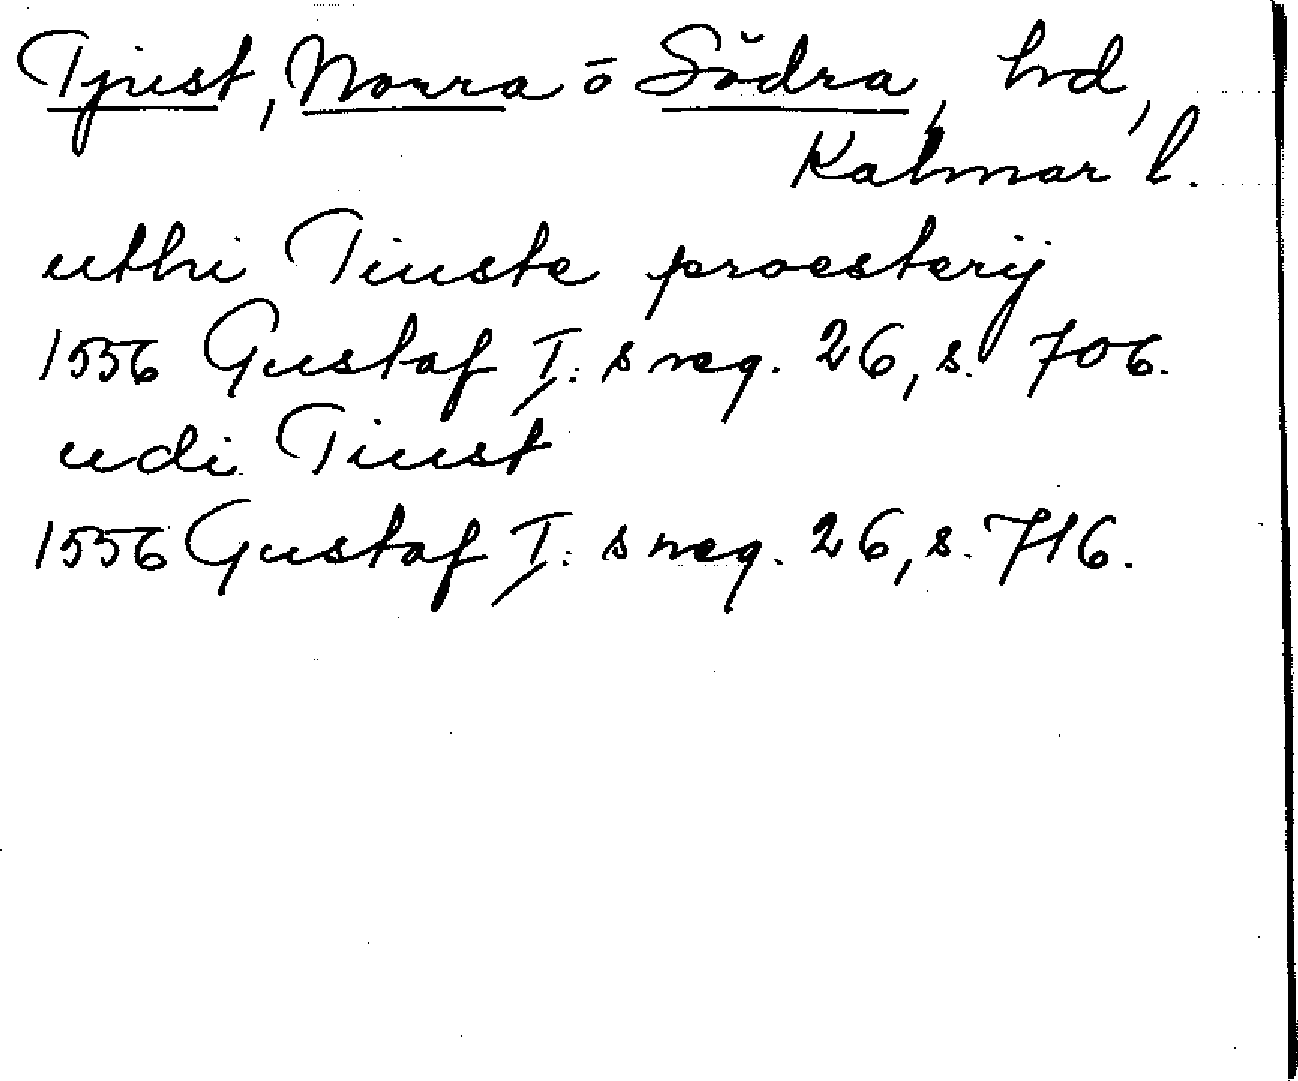 Tjust, Norra o Södra, hd,
Kalmar l.
uthi Tiuste proesterij
1556 Gustaf I: s reg. 26, s. 706.
udi Tiust
1556 Gustaf I: s reg. 26, s. 716.